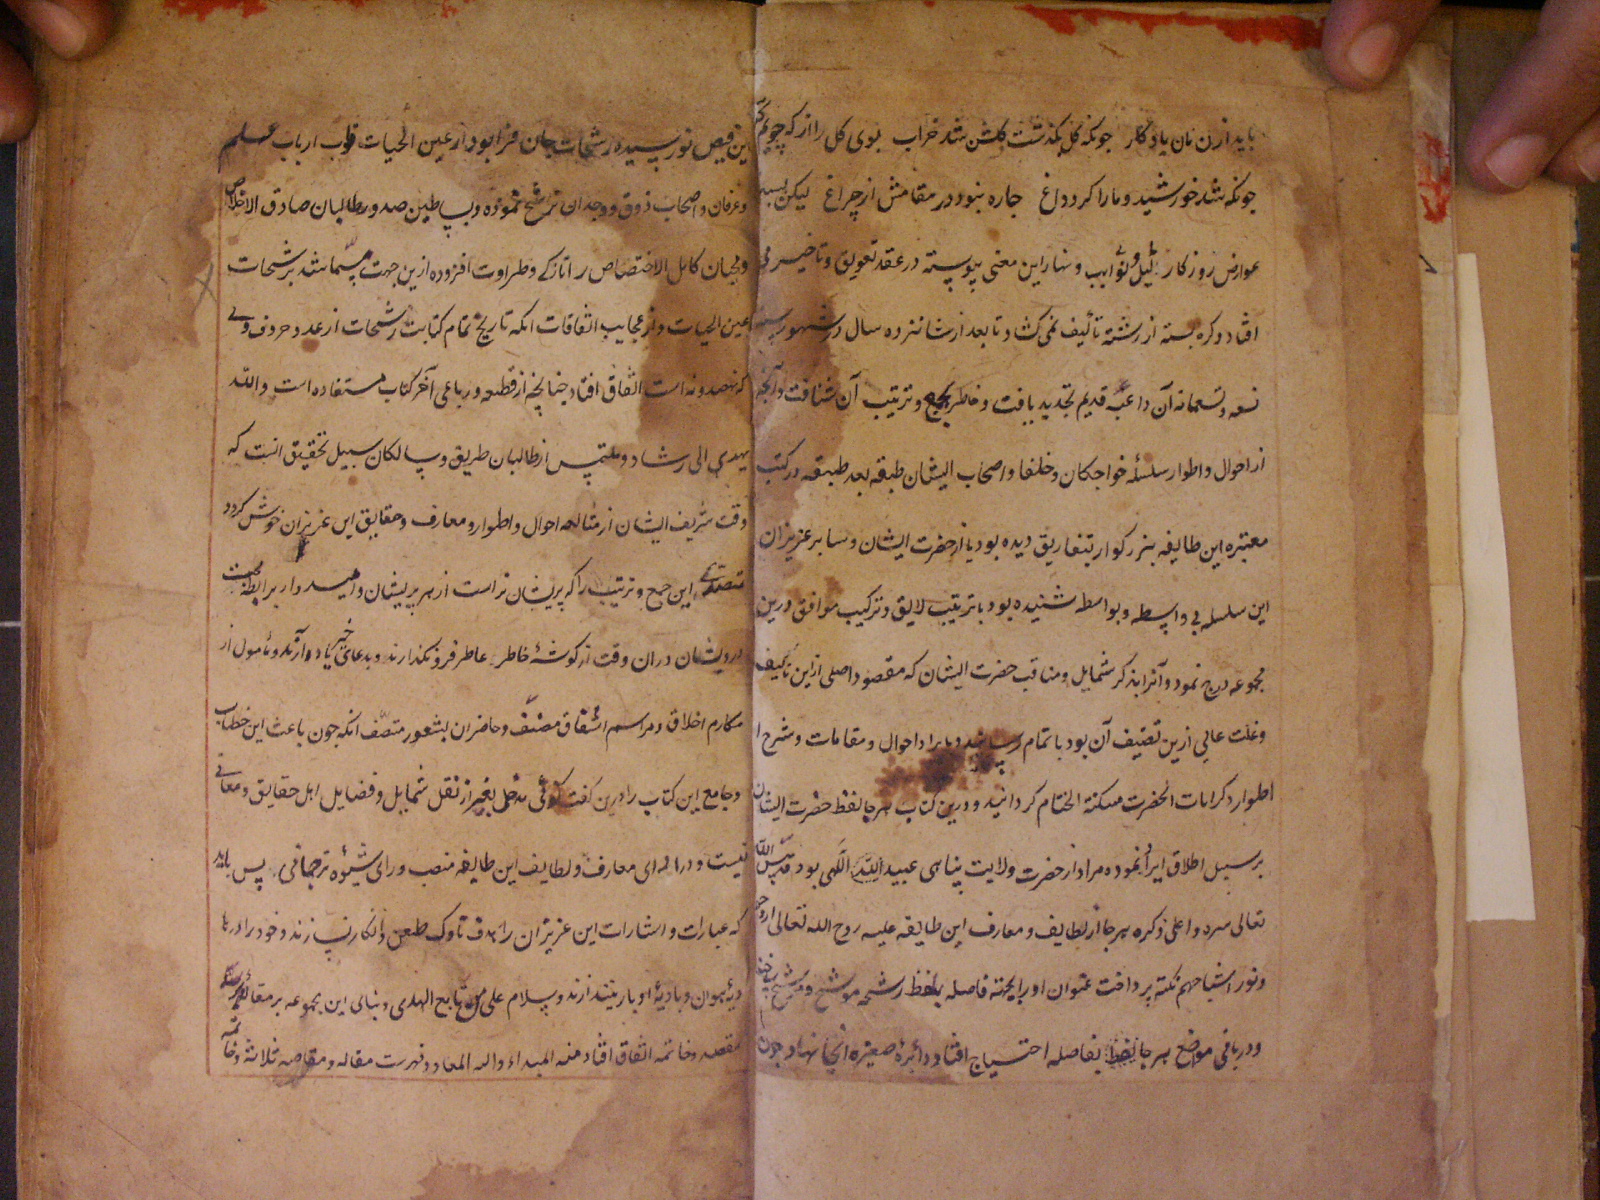 باید ازن مان یادکار جونکه کل بکذشت کلشن شد خراب بوی کل را از که جویم
جونکه شد خورشید و ما را کرد داغ جاره نبود در مقامش از چراغ لیکن
عوارض روزکار لیل و نوایب و نهار این معنی پیوسته در عقد تعویق و تاخیر می
افتاد و کره بسته از رشته تألیف نمی کشاد تا بعد از شانزده سال در شهور سنه
تسعه و تسعمائه آن داعیه قدیم تجدید یافت و خاطر بجمع و ترتیب آن شتافت و آنچه
از احوال و اطوار سلسله خواجکان و خلفا و اصحاب ایشان طبقه بعد طبقه در کتب
معتبره این طایفه بزرکوار بتفاریق دیده بود یا از حضرت ایشان و سایر عزیزان
این سلسله بی واسطه و بواسطه شنیده بود با ترتیب لایق و ترکیب موافق درین
مجموعه درج نمود و آنرا بذکر شمایل و مناقب حضرت ایشان که مقصود اصلی ازین تألیف
و علت غایی ازین تصنیف آن بود باتمام رسانید و بایراد احوال و مقامات و شرح
اطوار و کرامات آنحضرت مسکیة الختام کردانید و درین کتاب هر جا لفظ حضرت ایشان
بر سبیل اطلاق ایراد نموده مراد از حضرت ولایت پناهی عبید اللهی بود قدس الله
تعالی سره و اعلی ذکره هر جا از لطایف و معارف این طایفه علیه روح الله تعالی ارواحهم
و نور اشباحهم نکته پرداخت عنوان او را بجهته فاصله بلفظ رشحه موشح و مرشح ساخت
و در باقی مواضع هر جا لفظ بفاصله احتیاج افتاد دائرهٔ صغیره آنجا نهاد جون
این فیض نور رسیده رشحات جان فزا بود از عین الحیات قلوب ارباب علم
و عرفان و اصحاب ذوق و وجدان ترشح نموده و بساطین صدور طالبان صادق الاخلاص
و محبان کامل الاختصاص را تازکی و طراوت افزوده ازین جهت مسما شد برشحات
عین الحیات و از عجایب اتفاقات انکه تاریخ تمام کتابت رشحات از عدد حروف وی
که نهصد و نه است اتفاق افتاد جنانچه از قطعه و رباعی آخر کتاب مستفاده است و الله
یهدی الی رشاد و ملتمس از طالبان طریق و سالکان سبیل تحقیق انست که
وقت شریف ایشان از مطالعه احوال و اطوار و معارف و حقایق این عزیزان خوش کردد
متصدی این جمع و ترتیب را که پریشان تر است از هر پریشان و امیدوار برابطهٔ محبت
درویشان دران وقت از کوشهٔ خاطر عاطر فرو نکذارند و بدعای خیر یاد آرند و مأمول از
مکارم اخلاق و مراسم اشفاق مصنف و حاضران بشعور متصف انکه جون باعث این خطاب
و جامع این کتاب را درین کفت و کوی مدخل بغیر از نقل شمایل و فضایل اهل حقایق و معانی
نیست و در ادای معارف و لطایف این طایفه منصب ورای شیوهٔ ترجمانی پس باید
که عبارات و اشارات این عزیزان را هدف ناوک طعن و انکار نسازند و خود را در ها
دیهٔ هوان و بادیهٔ ادبار نیندازند و سلام علی من تابع الهدی و بنای این مجموعه بر مقاله و سه
مقصد و خاتمه اتفاق افتاد منه المبداء و الیه المعاد فهرست مقاله و مقاصد ثلاثه و خاتمه